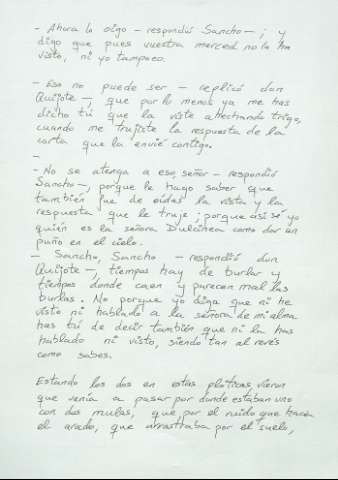 - Ahora lo oigo - respondió Sancho -; y
digo que pues vuestra merced no la ha
visto, ni yo tampoco.
- Eso no puede ser - replicó don
Quijote -, que por lo menos ya me has
dicho tú que la viste ahechando trigo,
cuando me trujiste la respuesta de la
carta que la envié contigo.
-
- No se atenga a eso, señor - respondió
Sancho -, porque le hago saber que
también fue de oídas la vista y la
respuesta que le truje; porque así sé yo
quién es la señora Dulcinea como dar un
puño en el cielo.
- Sancho, Sancho - respondió don
Quijote -, tiempos hay de burlar y
tiempos donde caen y parecen mal las
burlas. No porque yo diga que ni he
visto ni hablado a la señora de mi alma
has tú de decir también que ni la has
hablado ni visto, siendo tan al revés
como sabes.
Estando los dos en estas pláticas, vieron
que venía a pasar por donde estaban uno
con dos mulas, que por el ruido que hacía
el arado, que arrastraba por el suelo,